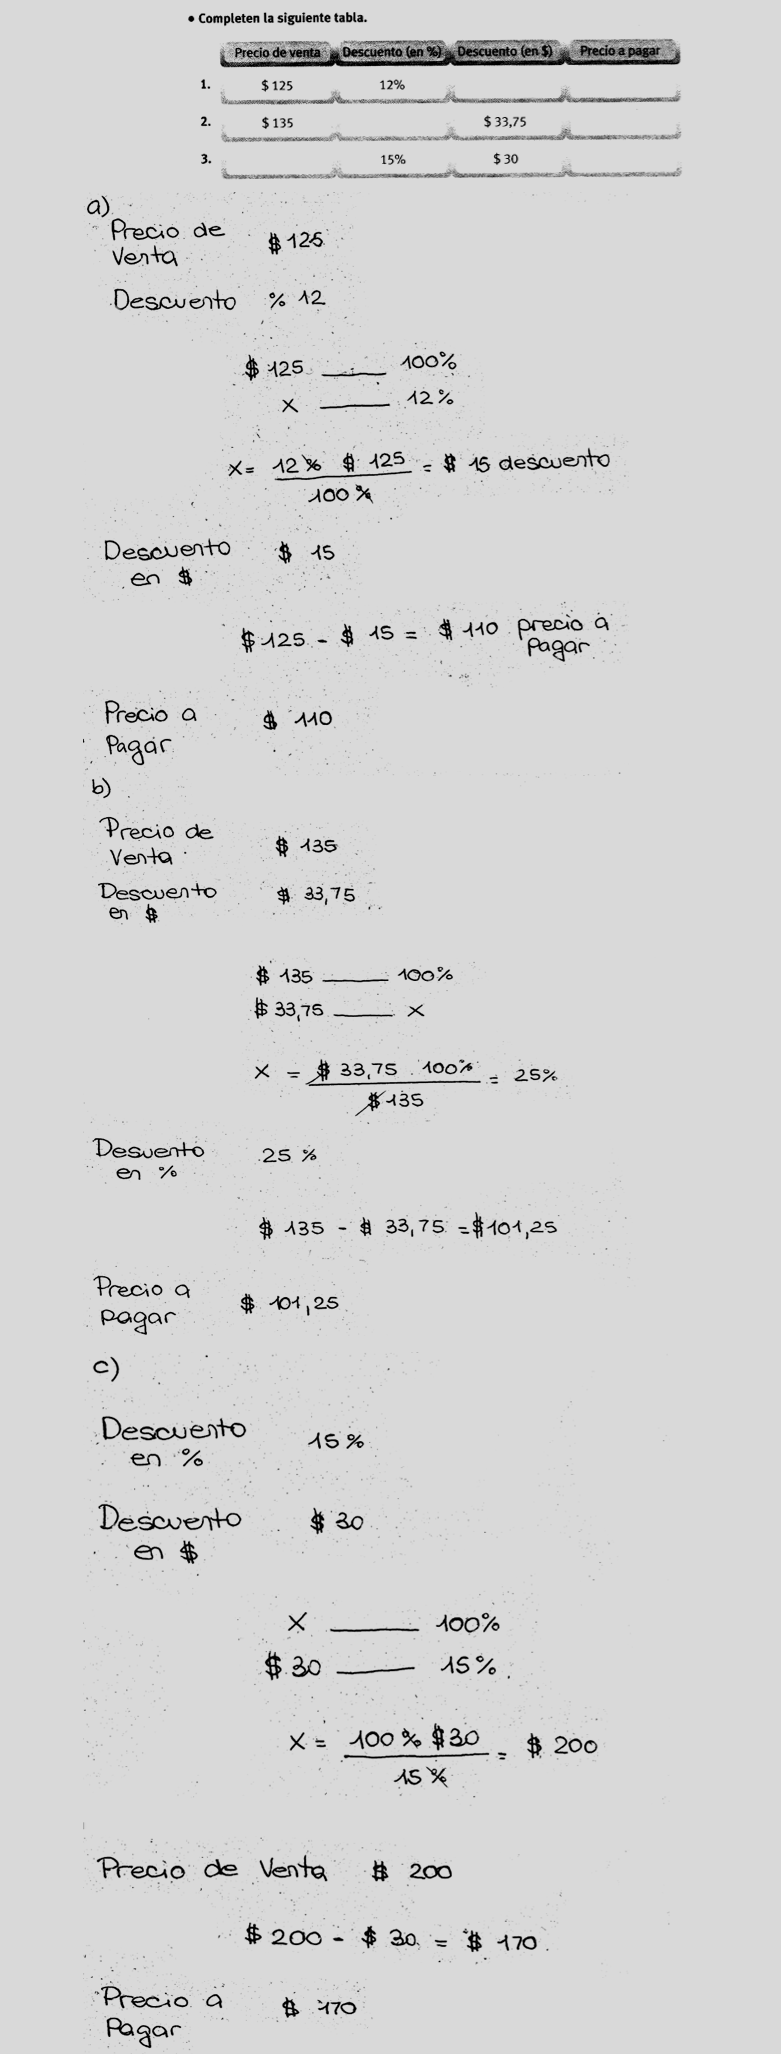 • Completen la siguiente tabla.
Precio de venta Descuento (en %) Descuento (en $) Precio a pagar
1. $ 125 12%
2. $ 135 $ 33,75
3. 15% $ 30
a)
Precio de
Venta $ 125
Descuento % 12
$ 125 ___ 100%
x ___ 12%
x = 12% $ 125 = $ 15 descuento
100%
Descuento $ 15
en $
$ 125 - $ 15 = $ 110 precio a
Pagar
Precio a $ 110
Pagar
b)
Precio de
Venta $ 135
Descuento $ 33,75
en $
$ 135 ___ 100%
$ 33,75 ___ x
x = $ 33,75 . 100% = 25%
$ 135
Desuento 25 %
en %
$ 135 - $ 33,75 = $101,25
Precio a $ 101,25
pagar
c)
Descuento 15%
en %
Descuento $ 30
en $
x ___ 100%
$ 30 ___ 15%
x = 100% $30 = $ 200
15%
Precio de Venta $ 200
$ 200 - $ 30 = $ 170
Precio a $ 170
Pagar